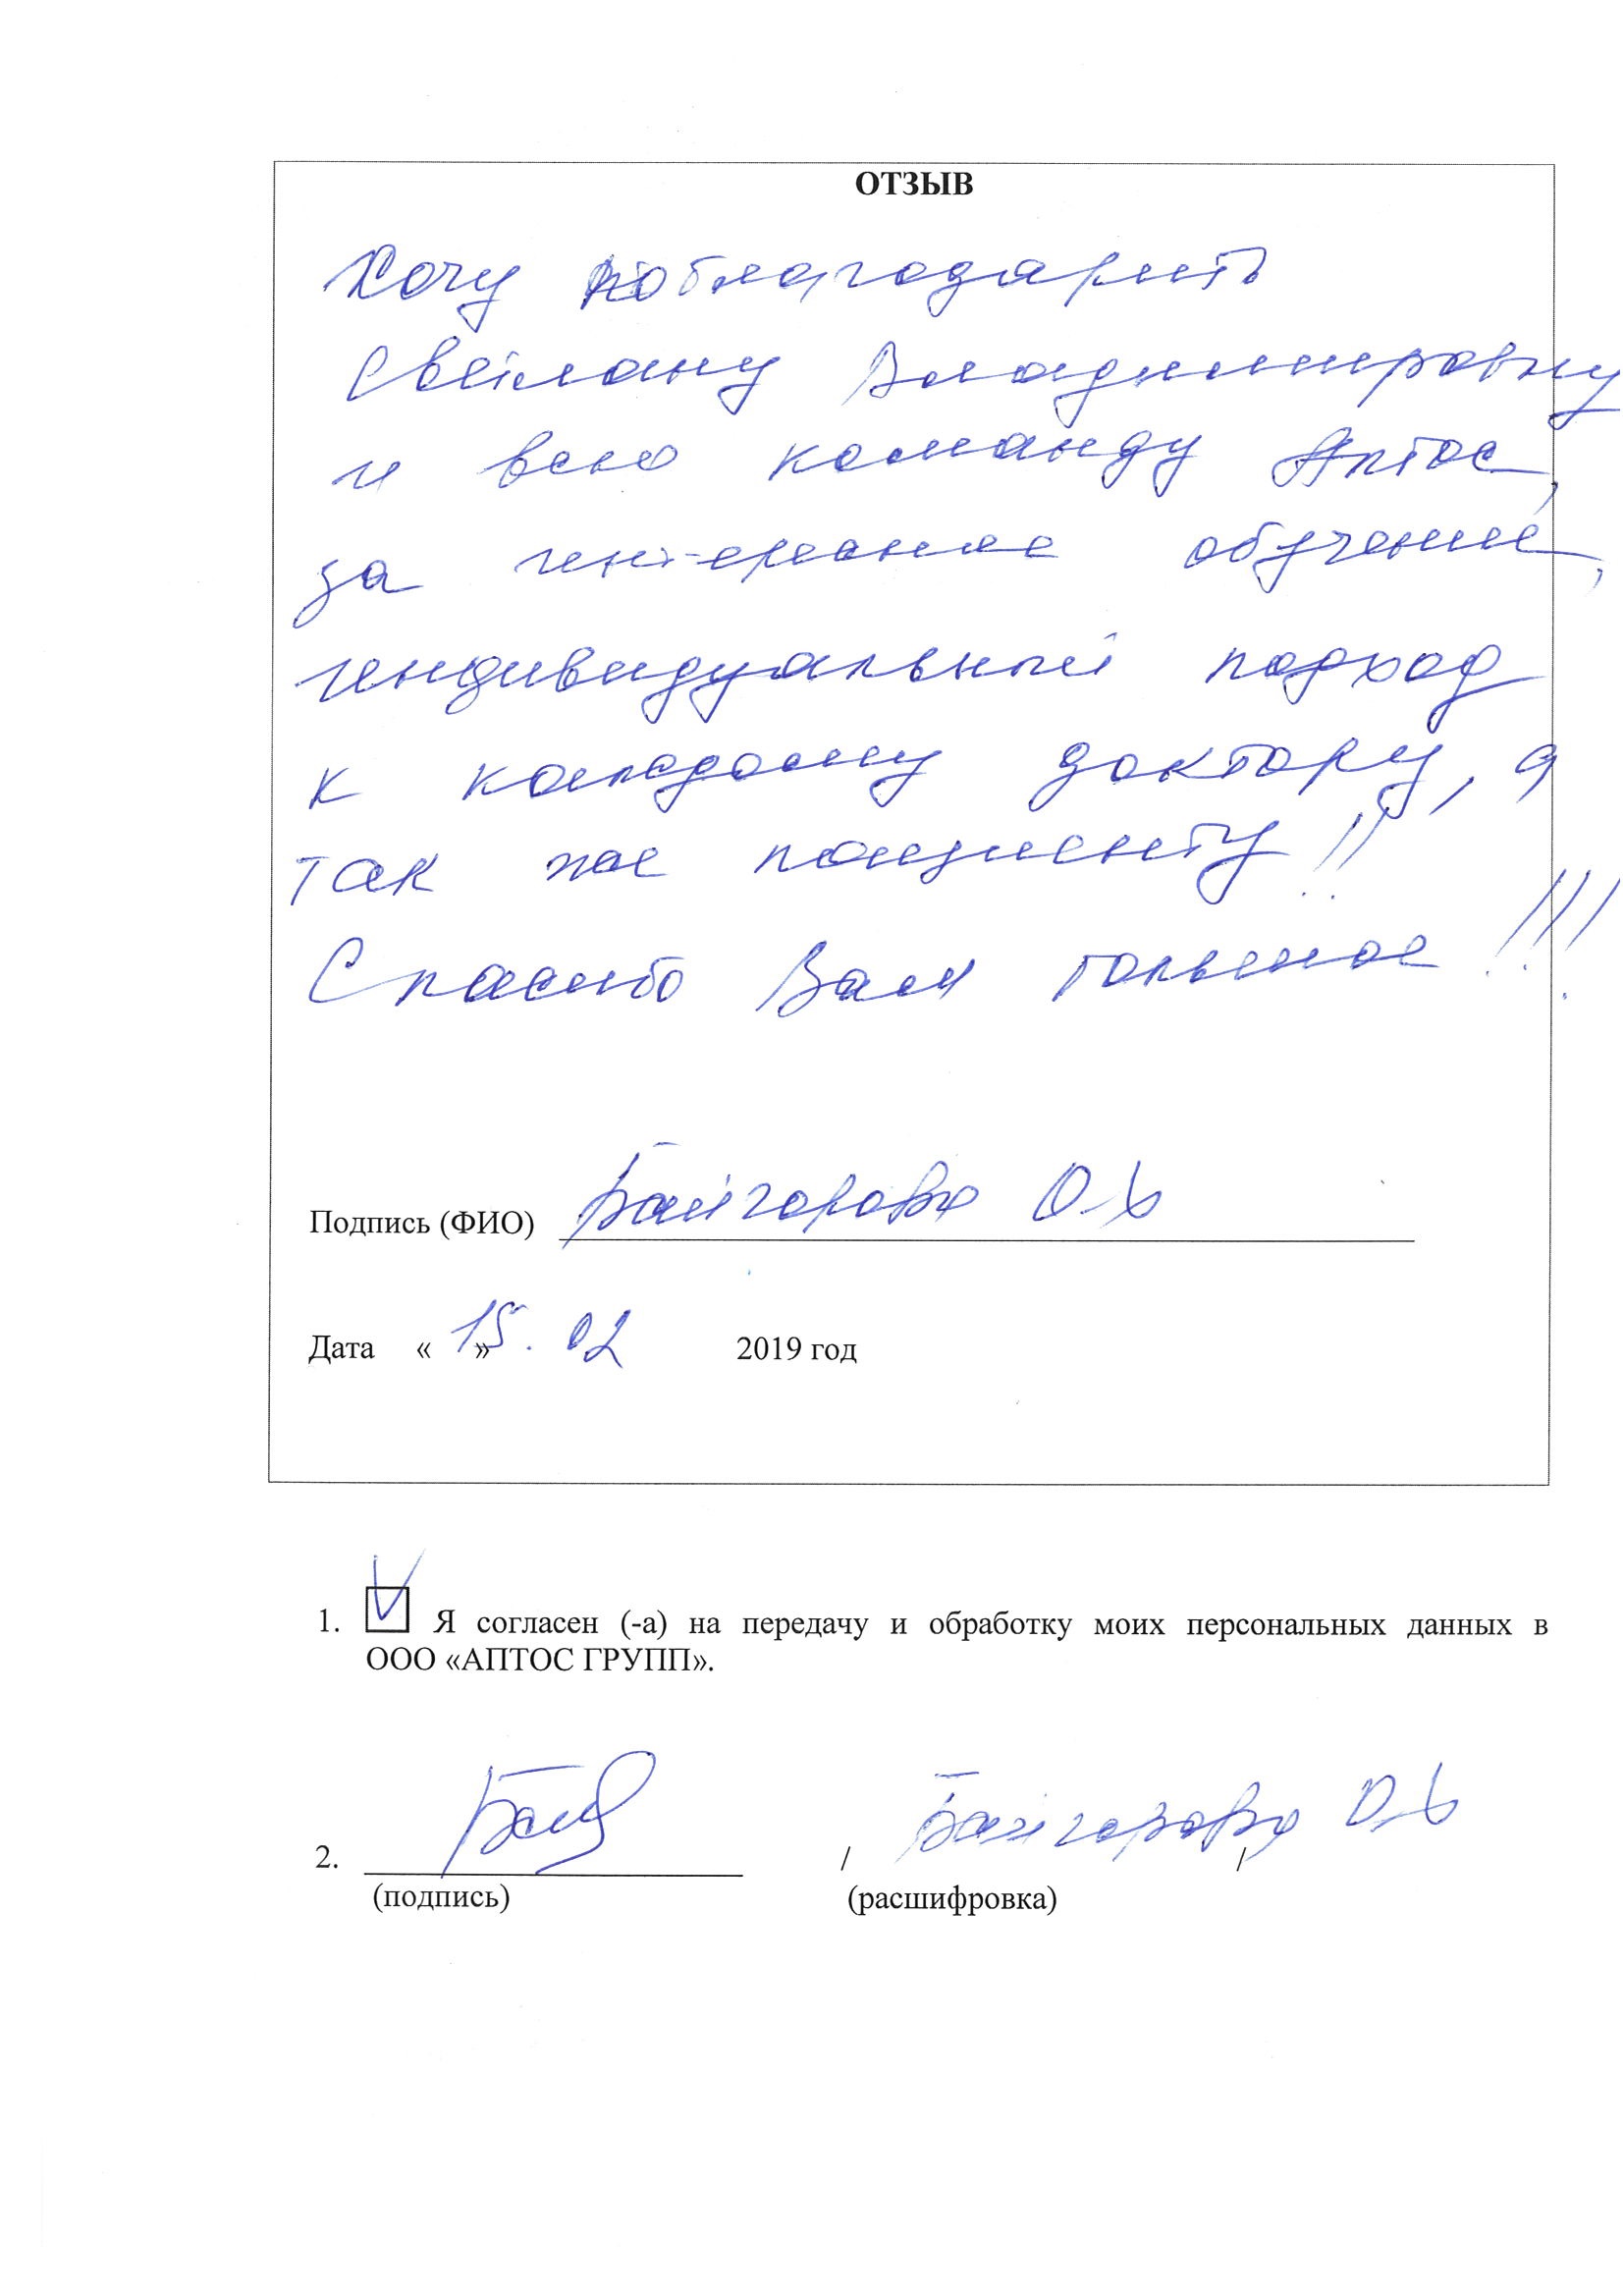 ОТЗЫВ
Хочу поблагодарить
Светлану Владимировну
и всю команду Аптос,
за интересное обучение,
индивидуальный подход
к каждому доктору, а
так же пациенту!!
Спасибо Вам большое!!!
Подпись (ФИО) Байгорова О.
Дата « 15 » . 02 2019 год
1. Я согласен (-а) на передачу и обработку моих персональных данных в
ООО «АПТОС ГРУПП».
2. / Байгорова О. /
(подпись) (расшифровка)